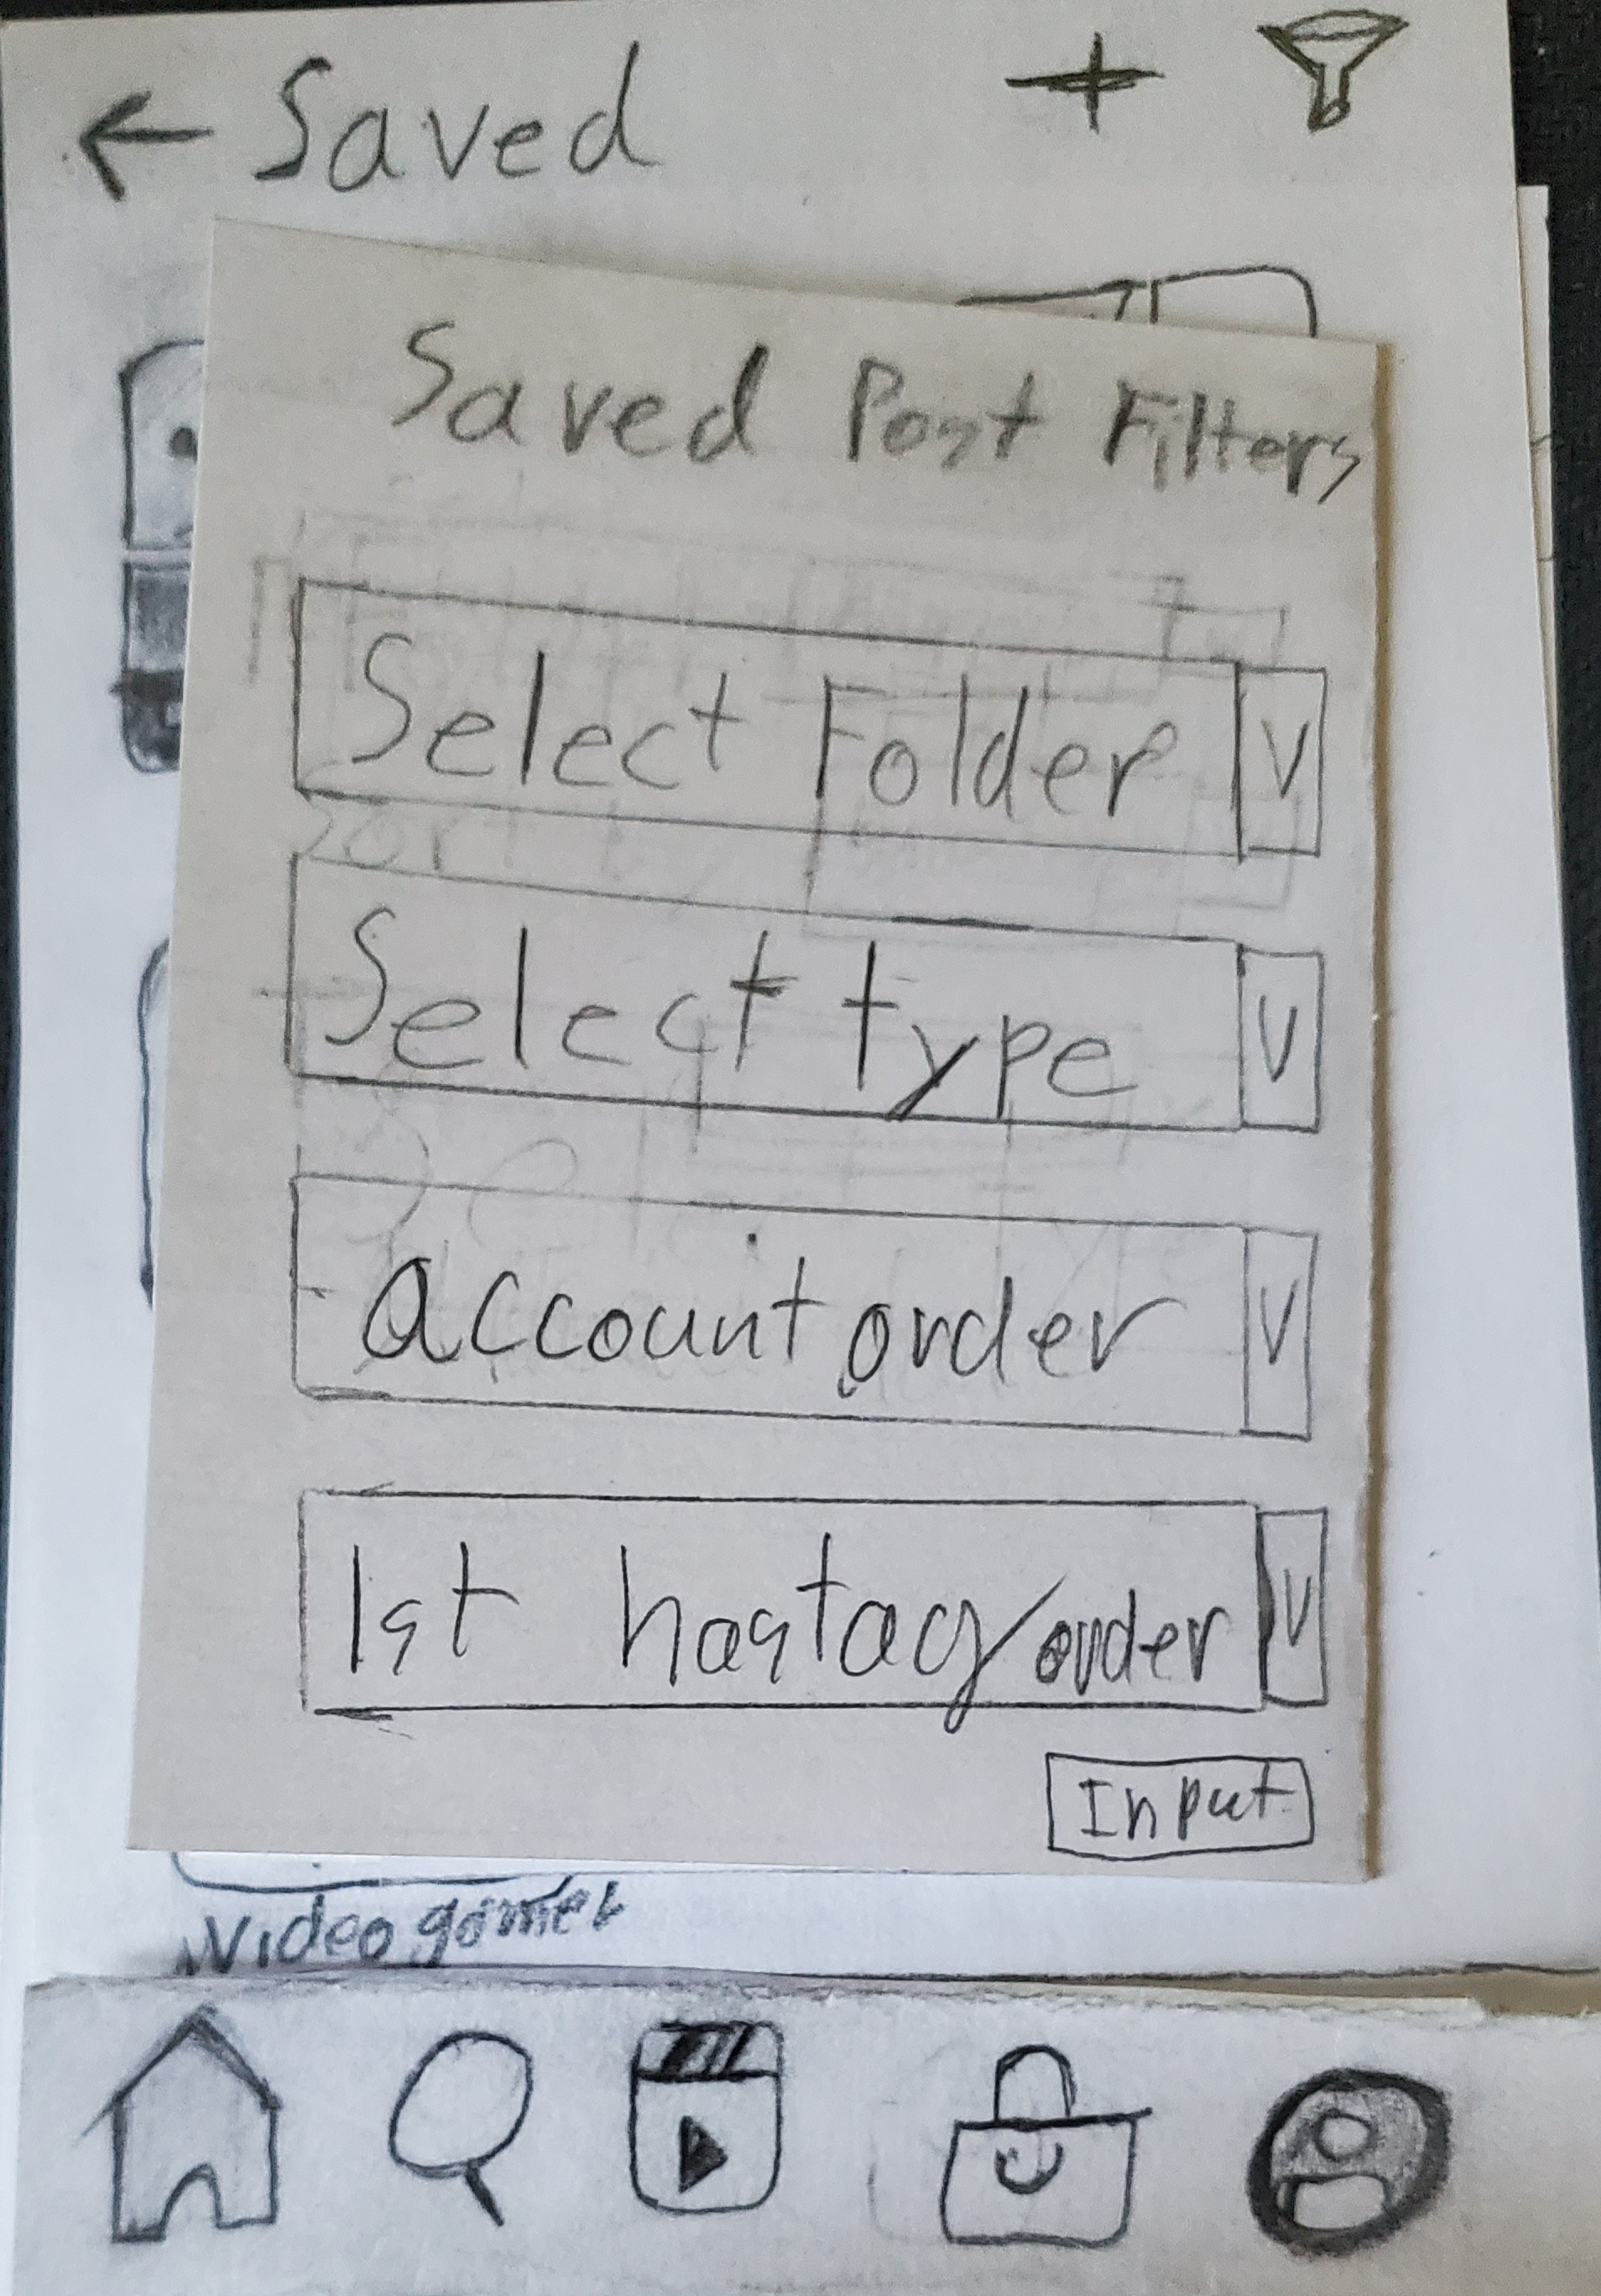 ← Saved +
Saved Post Filters
Select Folder V
Select type V
account order V
1st hastag order V
Input
Video games